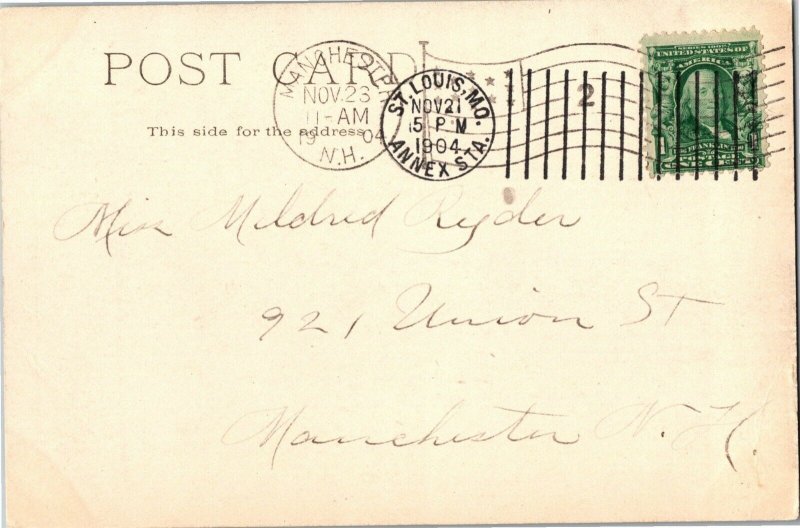 POST CARD
This side for the address
MANCHESTER
NOV 23
11-AM
1904
N.H.
ST. LOUIS, MO.
NOV 21
5 PM
1904
ANNEX STA.
2
SERIES 1902
UNITED STATES OF
AMERICA
FRANKLIN
1
POSTAGE
Miss Mildred Ryder
921 Union St
Manchester N.H.